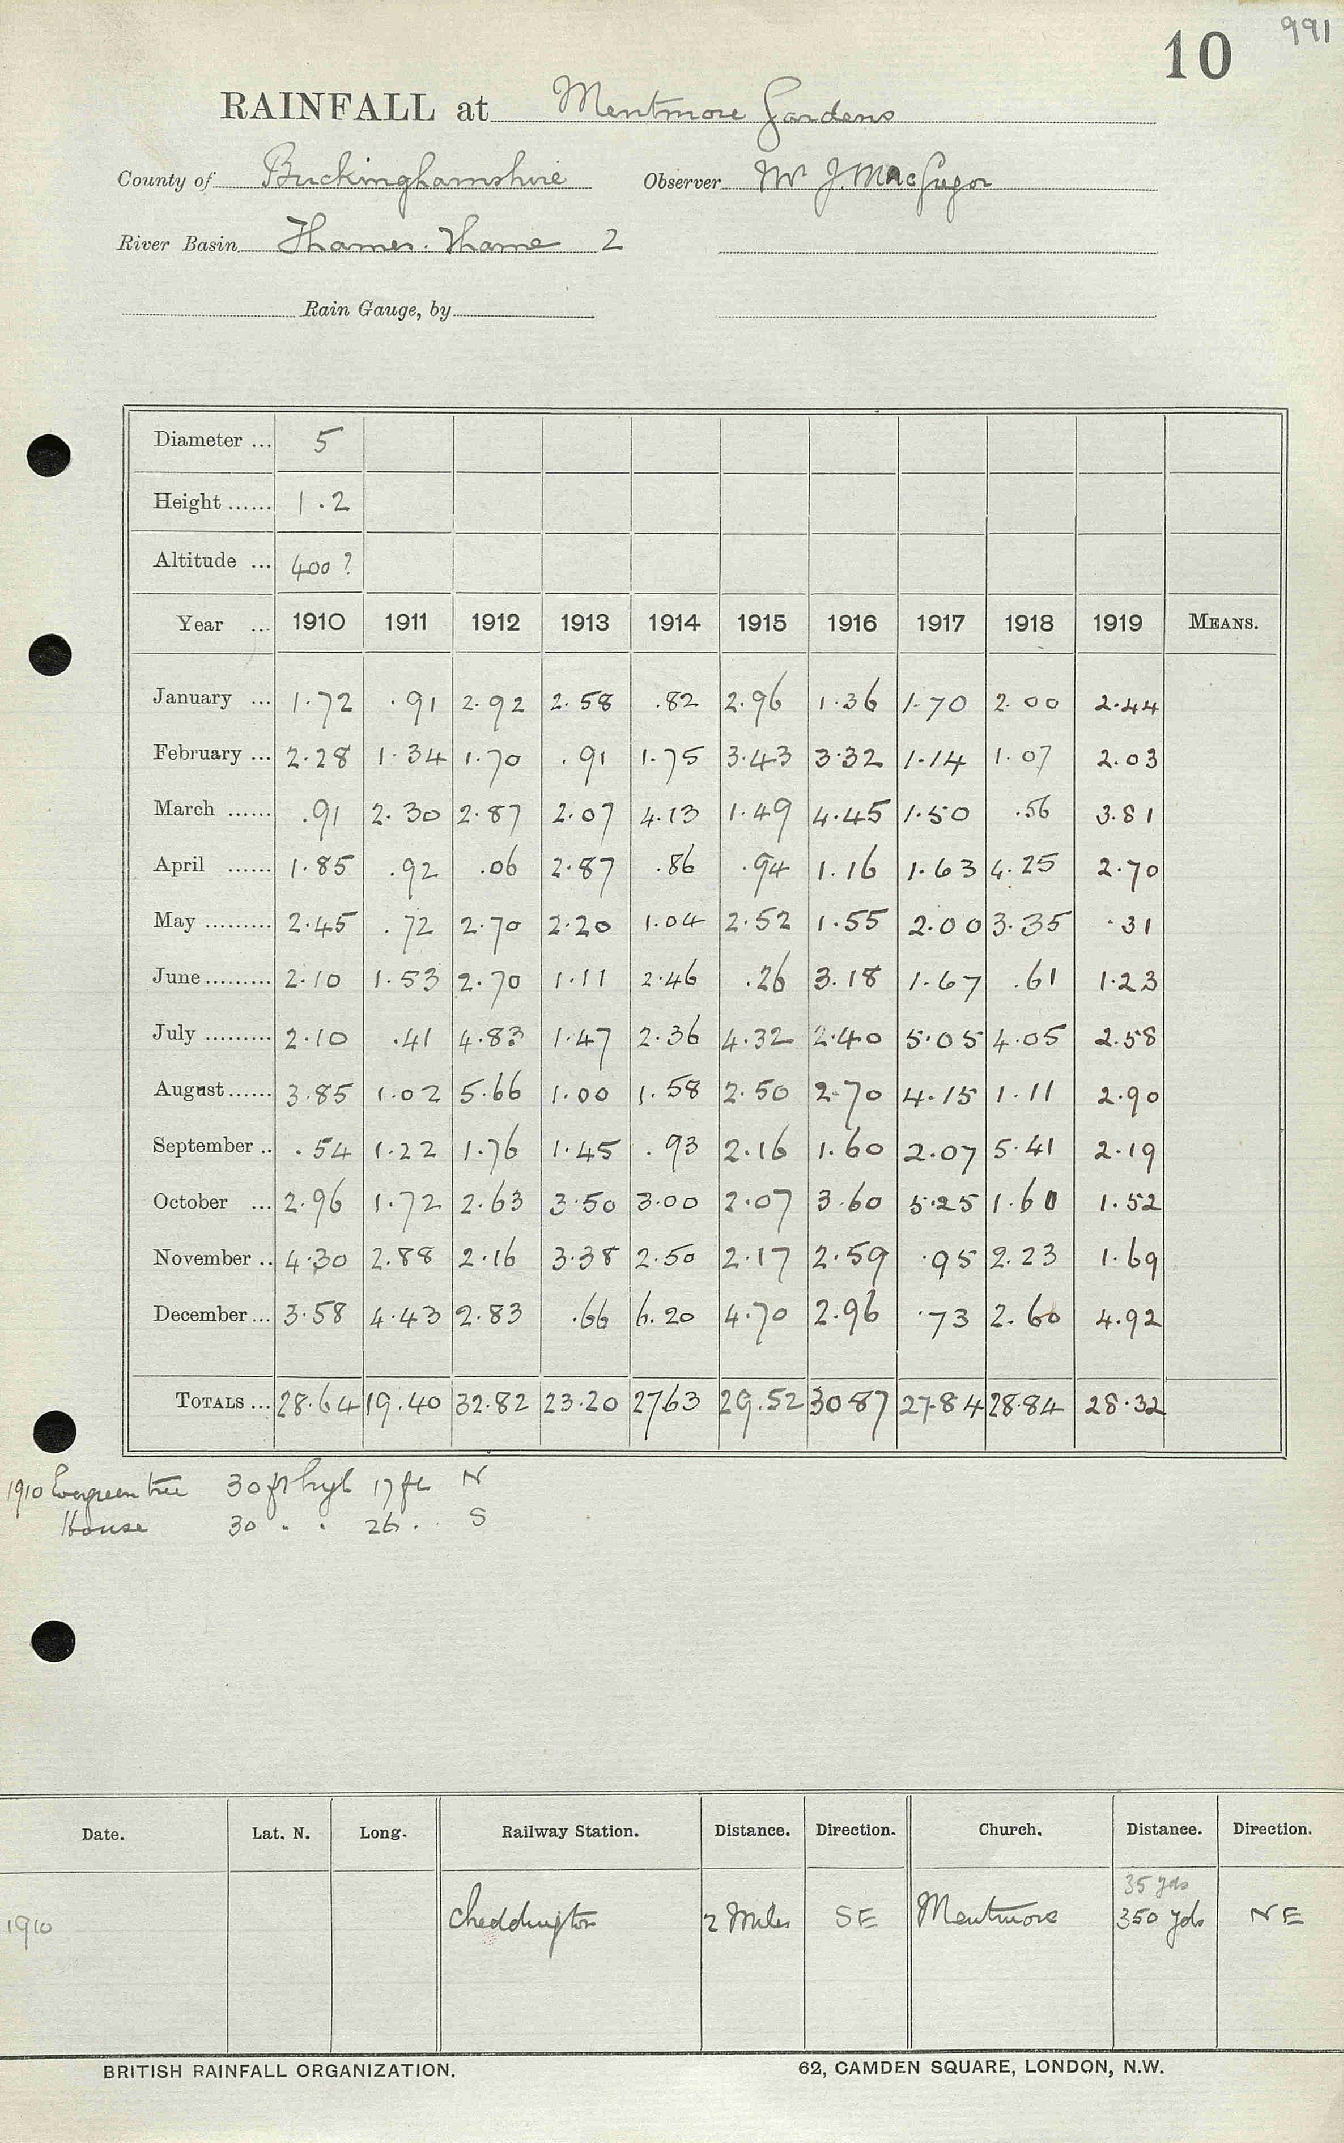 991
10
RAINFALL at Mentmore Gardens
County of Buckinghamshire Observer Mr J. MacGregor
River Basin Thames. Thame 2
Rain Gauge, by
Diameter ... 5
Height ...... 1.2
Altitude ... 400?
Year ... 1910 1911 1912 1913 1914 1915 1916 1917 1918 1919 MEANS.
January ... 1.72 .91 2.92 2.58 .82 2.96 1.36 1.70 2.00 2.44
February ... 2.28 1.34 1.70 .91 1.75 3.43 3.32 1.14 1.07 2.03
March ...... .91 2.30 2.87 2.07 4.13 1.49 4.45 1.50 .56 3.81
April ...... 1.85 .92 .06 2.87 .86 .94 1.16 1.63 4.25 2.70
May ......... 2.45 .72 2.70 2.20 1.04 2.52 1.55 2.00 3.35 .31
June ......... 2.10 1.53 2.70 1.11 2.46 .26 3.18 1.67 .61 1.23
July ......... 2.10 .41 4.83 1.47 2.36 4.32 2.40 5.05 4.05 2.58
August ...... 3.85 1.02 5.66 1.00 1.58 2.50 2.70 4.15 1.11 2.90
September .. .54 1.22 1.76 1.45 .93 2.16 1.60 2.07 5.41 2.19
October ... 2.96 1.72 2.63 3.50 3.00 2.07 3.60 5.25 1.60 1.52
November .. 4.30 2.88 2.16 3.38 2.50 2.17 2.59 .95 2.23 1.69
December ... 3.58 4.43 2.83 .66 6.20 4.70 2.96 .73 2.60 4.92
TOTALS ... 28.64 19.40 32.82 23.20 27.63 29.52 30.87 27.84 28.84 28.32
1910 Evergreen tree 30 ft high 17 ft N
House 30 . . 26 . . S
Date. Lat. N. Long. Railway Station. Distance. Direction. Church. Distance. Direction.
35 yds
1910 Cheddington 2 Miles SE Mentmore 350 yds NE
BRITISH RAINFALL ORGANIZATION. 62, CAMDEN SQUARE, LONDON, N.W.